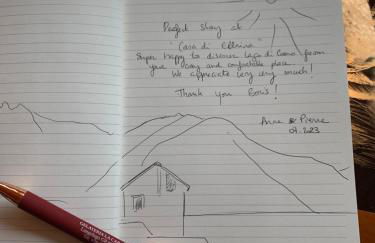 Perfect stay at
"Casa di Ellena"
Super happy to discover Lago di Como from
your cosy and comfortable place
We appreciate very very much!
Thank you Boris!
Anne & Pierre
07.2023
GELATERIA LA